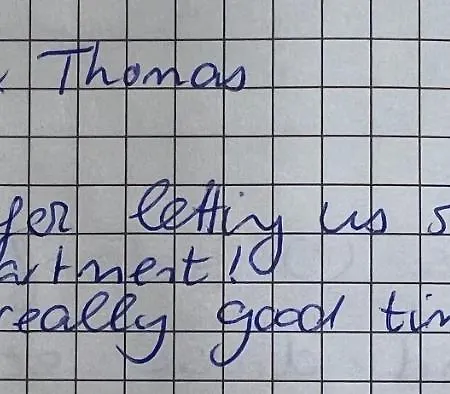 Thomas
for letting us s
artment!
really good tim